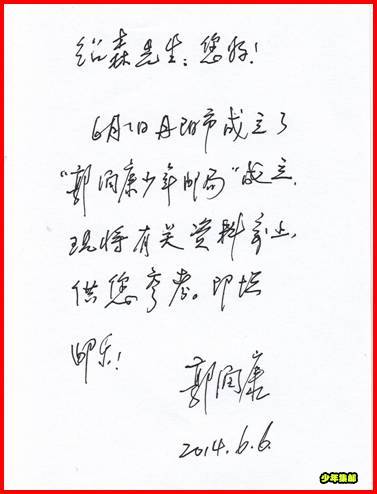 绍森先生：您好！
6月1日丹阳市成立了
“郭润康少年邮局”成立.
现将有关资料寄上,
供您参考。即颂
邮乐！
郭润康
2014.6.6.
少年集邮